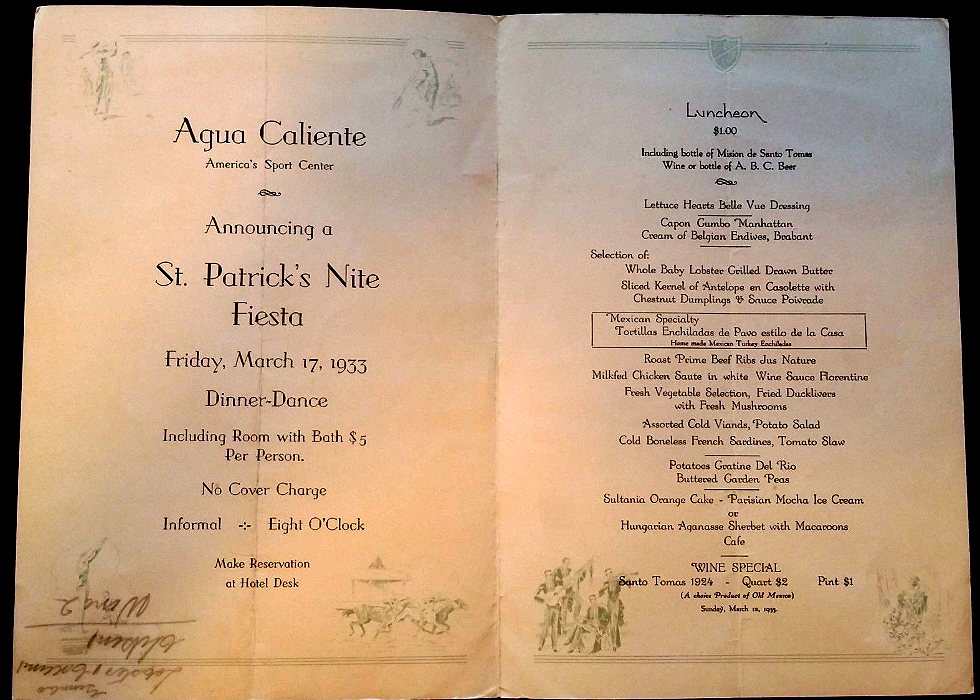 Agua Caliente
America's Sport Center
Announcing a
St. Patrick's Nite
Fiesta
Friday, March 17, 1933
Dinner-Dance
Including Room with Bath $5
Per Person.
No Cover Charge
Informal -:- Eight O'Clock
Make Reservation
at Hotel Desk
Luncheon
$1.00
Including bottle of Mision de Santo Tomas
Wine or bottle of A. B. C. Beer
Lettuce Hearts Belle Vue Dressing
Capon Gumbo Manhattan
Cream of Belgian Endives, Brabant
Selection of:
Whole Baby Lobster Grilled Drawn Butter
Sliced Kernel of Antelope en Casolette with
Chestnut Dumplings & Sauce Poivrade
Mexican Specialty
Tortillas Enchiladas de Pavo estilo de la Casa
Home made Mexican Turkey Enchiladas
Roast Prime Beef Ribs Jus Nature
Milkfed Chicken Saute in white Wine Sauce Florentine
Fresh Vegetable Selection, Fried Ducklivers
with Fresh Mushrooms
Assorted Cold Viands, Potato Salad
Cold Boneless French Sardines, Tomato Slaw
Potatoes Gratine Del Rio
Buttered Garden Peas
Sultania Orange Cake - Parisian Mocha Ice Cream
or
Hungarian Aganasse Sherbet with Macaroons
Cafe
WINE SPECIAL
Santo Tomas 1924 - Quart $2 Pint $1
(A choice Product of Old Mexico)
Sunday, March 12, 1933.